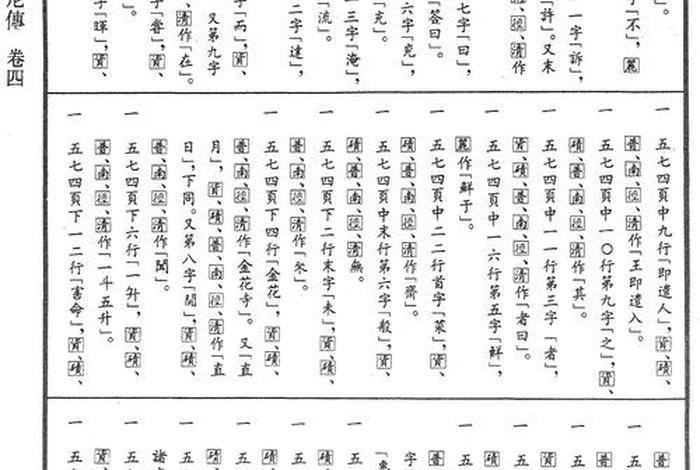 。
字「不」，麗
一字「訴」，
「許」。又末
徑、清作
七字「曰」，
「答曰」。
六字「充」，
「充」。
三字「淹」，
「流」。
二字「達」，
字「而」，資、
又第九字
、清作「在」。
字「嘗」，資、
。
字「暉」，資、
一 五七四頁中九行「即遣人」，資、磧、
普、南、徑、清作「王即遣入」。
一 五七四頁中一〇行第九字「之」，資、
磧、普、南、徑、清作「其」。
一 五七四頁中一一行第三字「者」，
資、磧、普、南、徑、清作「者曰」。
一 五七四頁中一六行第五字「鮮」，
麗作「鮮于」。
一 五七四頁中二二行首字「菜」，資、
磧、普、南、徑、清作「齋」。
一 五七四頁中末行第六字「般」，資、
磧、普、南、徑、清無。
一 五七四頁下二行末字「未」，資、磧、
普、南、徑、清作「岺」。
一 五七四頁下四行「金花」，資、磧、
普、南、徑、清作「金花寺」。又「直
月」，資、磧、普、南、徑、清作「直
日」，下同。又第八字「閒」，資、磧、
普、南、徑、清作「聞」。
一 五七四頁下六行「一升」，資、磧、
普、南、徑、清作「一斗五升」。
一 五七四頁下一二行「害命」，資、磧、
一 五
普
一 五
資
一 五
磧
一 五
普
字
「
一 五
磧
一 五
磧
一 五
磧
一 五
諸
一 五
資
一 五
尼傳 卷四